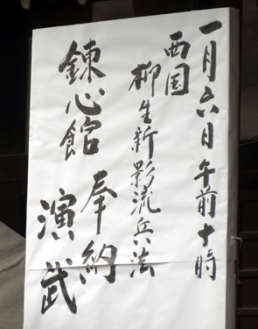 一月六日午前十時
西国
柳生新影流兵法
錬心館 奉納
演武